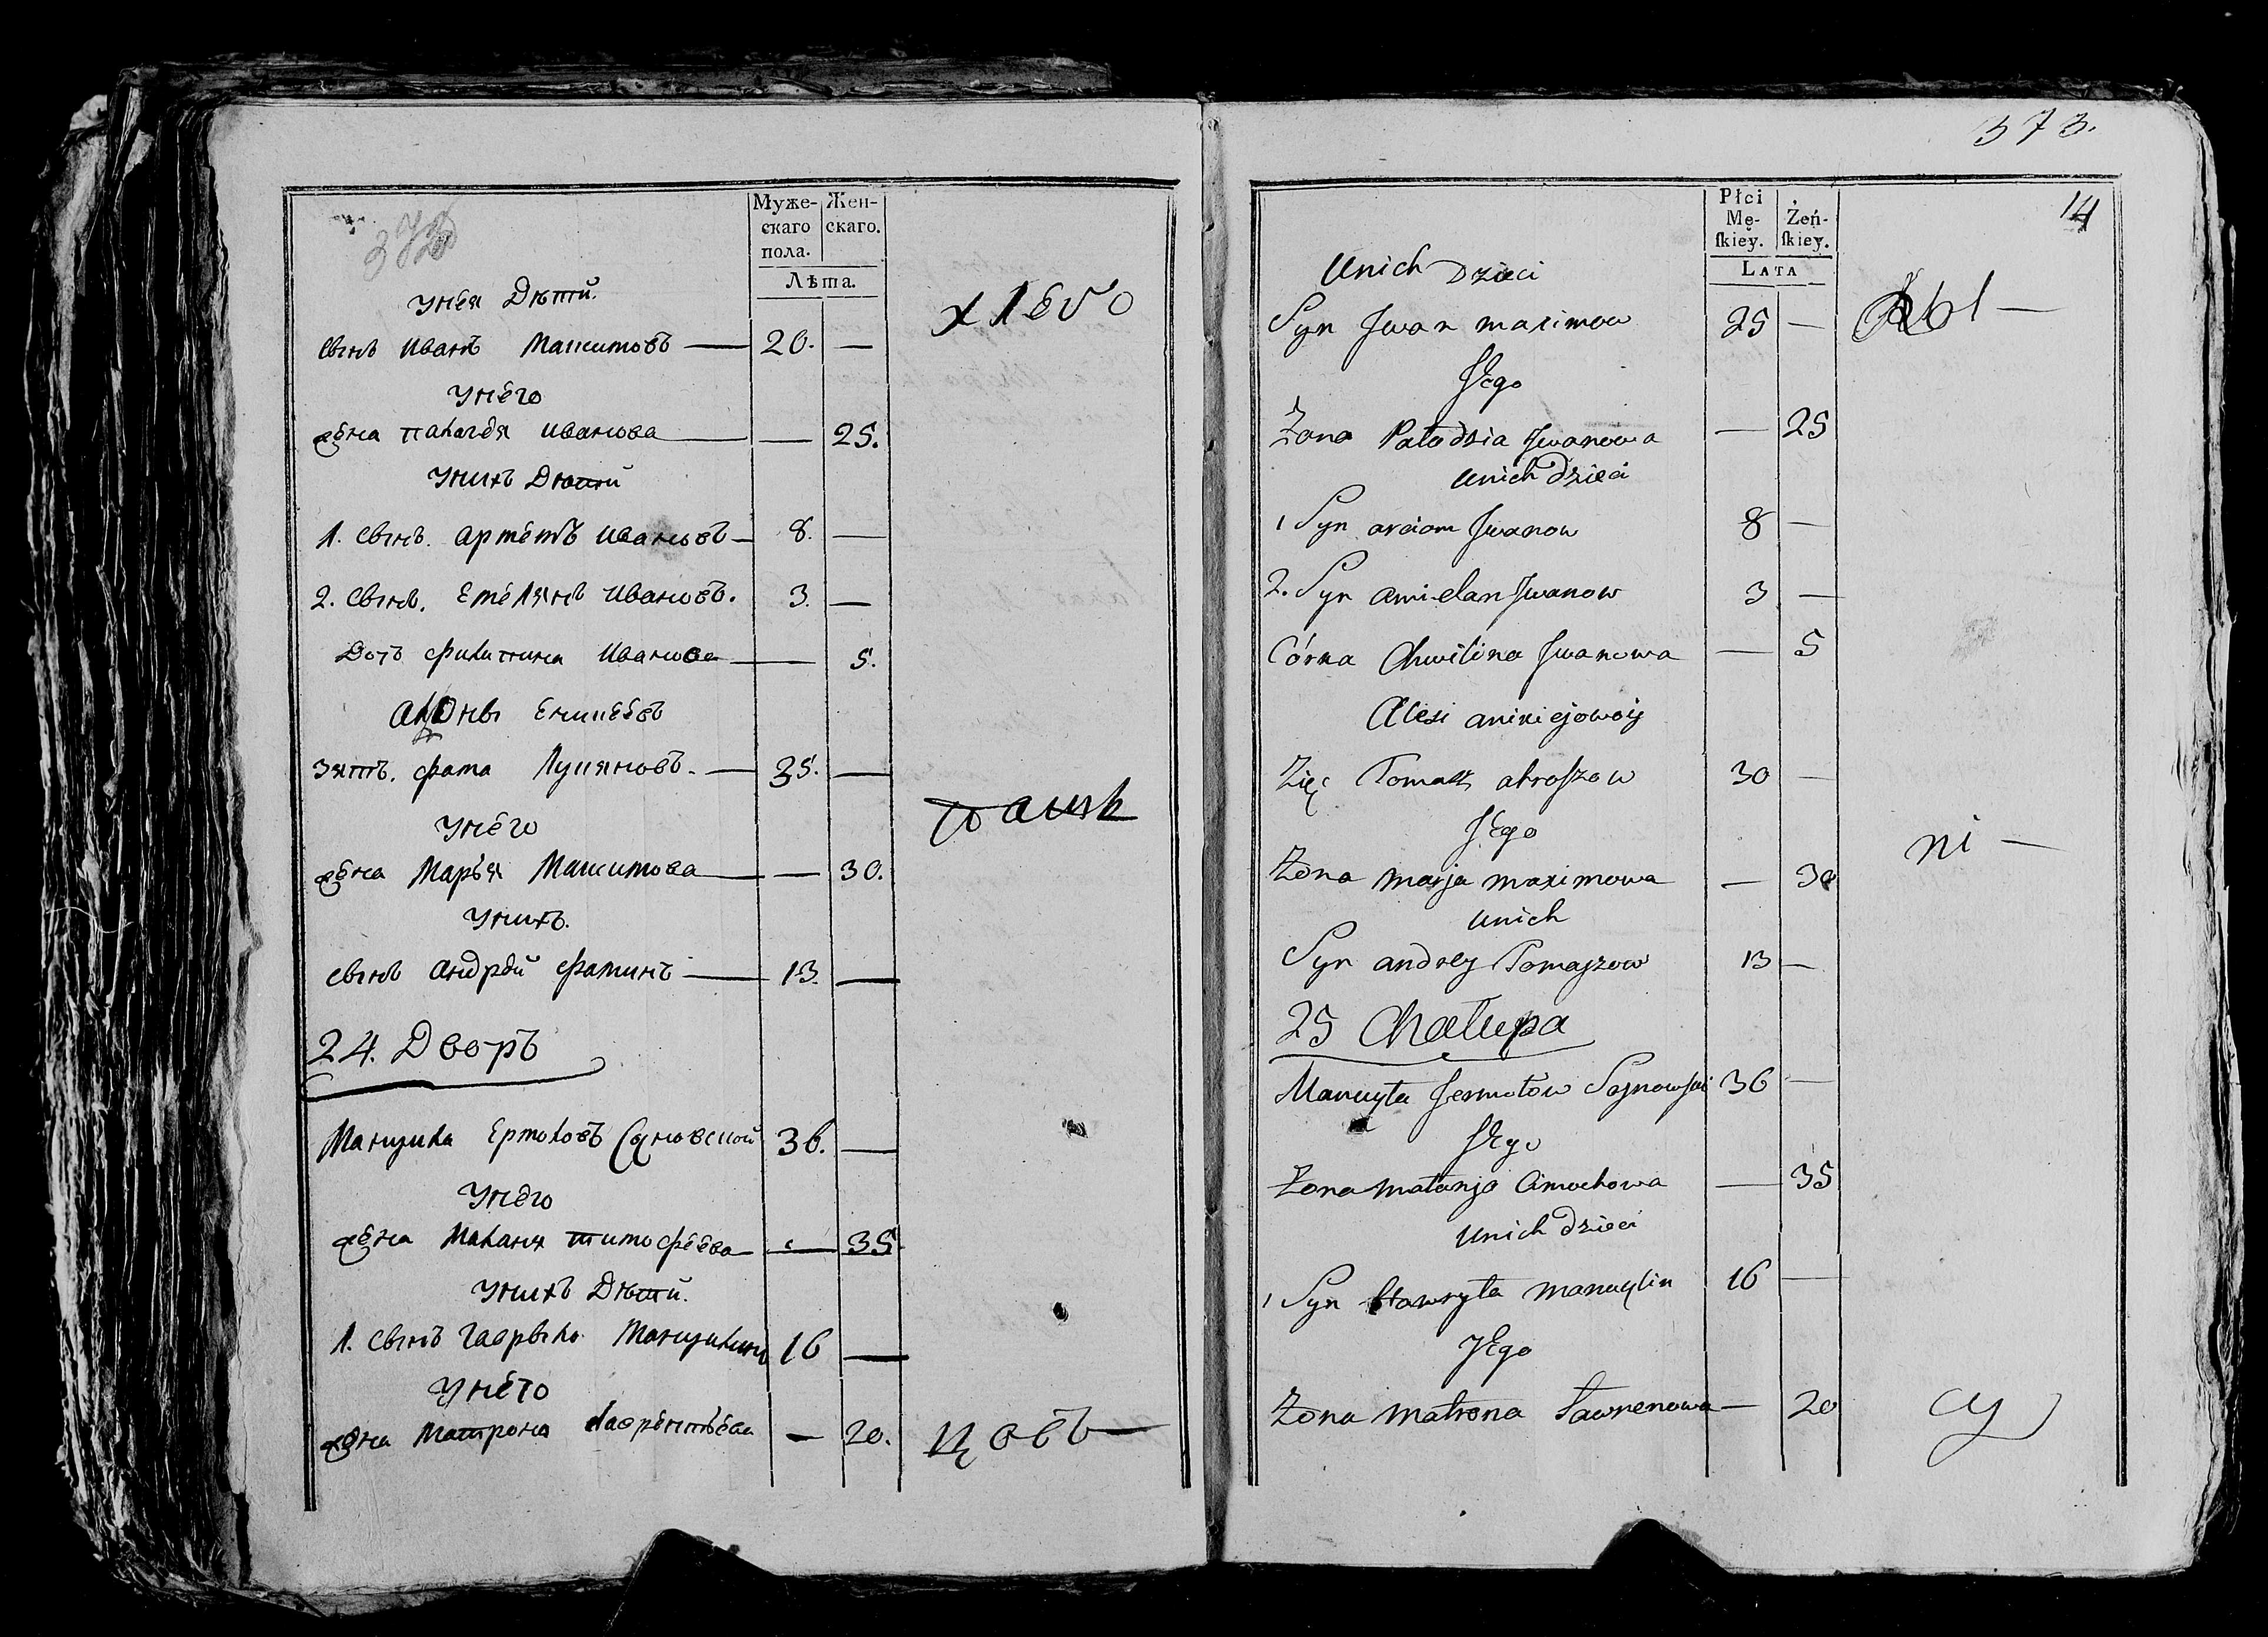 Муже-
скаго
пола.
Жен-
скаго.
Лѣта.
унея Дѣтий.
сынъ иванъ Максимовъ — 20. —
унего
жена палагея иванова — — 25.
унихъ Дѣтий
1. сынъ. артемъ ивановъ — 8. —
2. сынъ. емелянъ ивановъ. 3. —
Дочъ филипина иванова — — 5.
зять. фома — 35. —
унего
жена марья Максимова — — 30.
унихъ.
сынъ андрей фоминъ — 13. —
24. Дворъ
Мануила ермоловъ 36. —
унего
жена маланя тимофеева — — 35
унихъ Дѣтий.
1. сынъ гаврыла Мануилинъ 16 —
унего
жена матрона лаврентьева — 20.
хлебо
пашк
цовъ —
373.
14
Płci
Mę-
ſkiey.
Żeń-
ſkiey.
LATA
unich Dzieci
Syn Jwan maximow 25 —
JEgo
Żona Pałodzia Jwanowa — 25
unich dzieci
1 Syn arciom Jwanow 8 —
2. Syn amielan Jwanow 3 —
Córka Chwilina Jwanowa — 5
Alesi anikiejowoiy
Zięć Tomasz 30 —
JEgo
Żona marja maximowa — 30
unich
Syn andrey Tomaszow 13 —
25 Chałupa
Manuyła Jermołow 36 —
JEgo
Żona małanja Cimochowa — 35
unich dzieci
1 Syn hawryła manuylin 16 —
JEgo
Żona matrona Ławrenowa — 20
ni —
cy